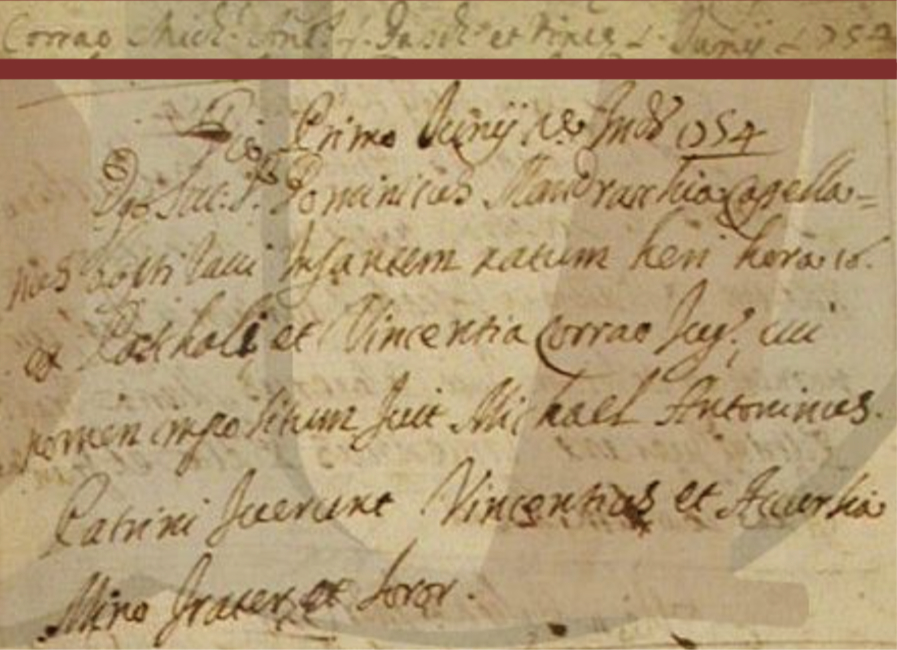 Corrao Mich: Ant: f. Pasch: et Vince 1. Junij 1754
Die Primo Junij 2æ Ind: 1754
Ego Sac: D. Dominicus Mandracchia Capella=
nus baptizavi Infantem natum heri hora 16.
ex Paschali et Vincentia Corrao Jug: cui
nomen impositum fuit Michael Antoninus.
Patrini fuerunt Vincentius et Accursia
Mino frater et soror.